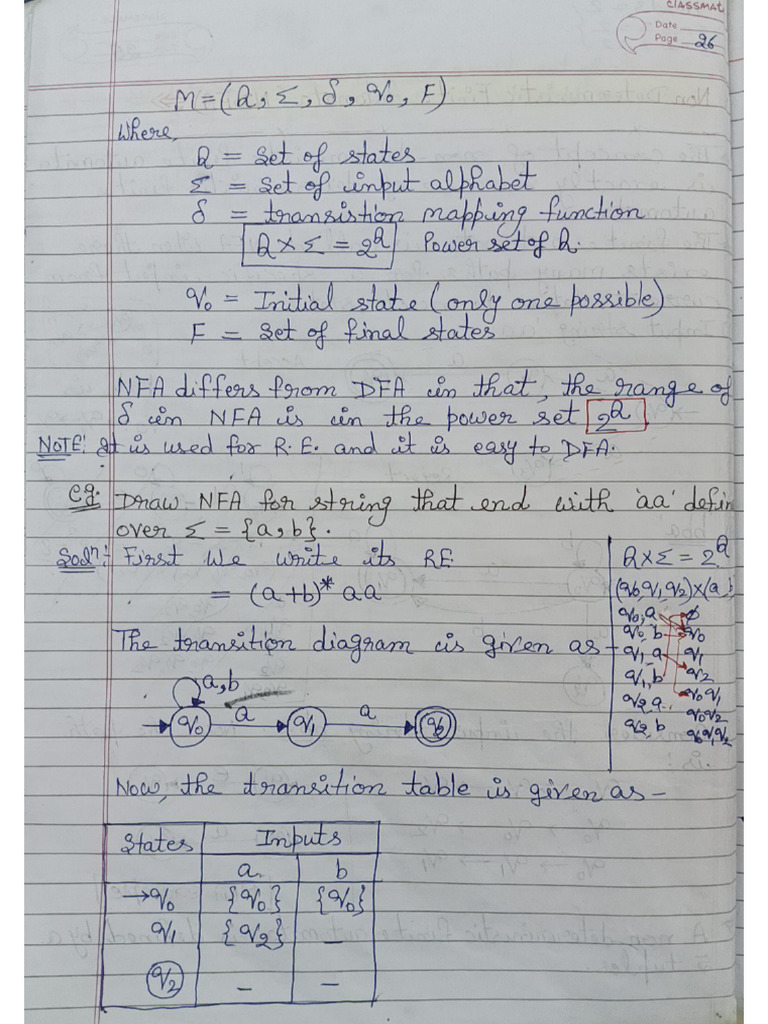 CLASSMAT
Date
Page 26
M = (Q, Σ, δ, q0, F)
Where,
Q = Set of states
Σ = Set of input alphabet
δ = transistion mapping function
Q × Σ = 2^Q Power set of Q.
q0 = Initial state (only one possible)
F = Set of final states
NFA differs from DFA in that, the range of
δ in NFA is in the power set 2^Q.
NOTE: It is used for R.E. and it is easy to DFA.
eg. Draw NFA for string that end with 'aa' defin
over Σ = {a, b}.
Soln: First We write its RE
= (a+b)* aa
The transition diagram is given as –
a,b
q0 a q1 a q2
Q × Σ = 2^Q
(q0, q1, q2) × (a, b
q0, a φ
q0, b q0
q1, a q1
q1, b q2
q2, a q0 q1
q2, b q0 q2
q0 q1 q2
Now, the transition table is given as –
States Inputs
a. b
→q0 {q0} {q0}
q1 {q2} –
q2 – –